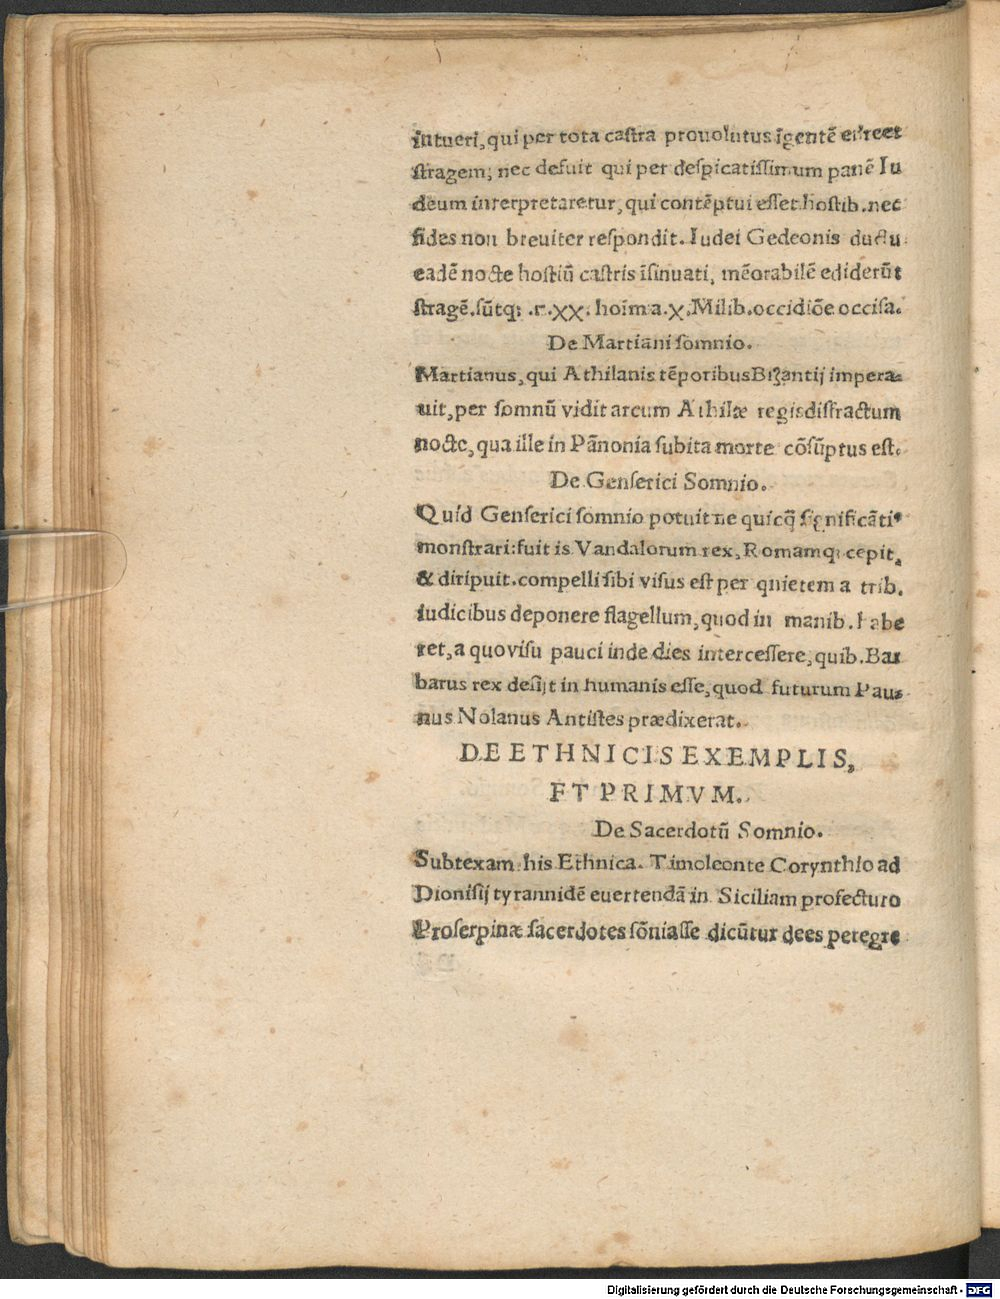 intueri, qui per tota castra prouolutus īgentē ederet
stragem; nec defuit qui per despicatissimum panē Iu
deum interpretaretur, qui contēptui esset hostib. nec
fides non breuiter respondit. Iudei Gedeonis ductu
eadē nocte hostiū castris īsinuati, mēorabilē ediderūt
stragē. sūtq; .c.XX. hoīm a.X. Milib. occidiōe occisa.
De Martiani somnio.
Martianus, qui Athilanis tēporibus Bizantij impera-
uit, per somnū vidit arcum Athilæ regis diffractum
nocte, qua ille in Pānonia subita morte cōsūptus est.
De Genserici Somnio.
Quid Genserici somnio potuit ne quicq̄ significāti⁹
monstrari: fuit is Vandalorum rex, Romamq; cepit,
& diripuit. compelli sibi visus est per quietem a trib.
iudicibus deponere flagellum, quod in manib. habe
ret, a quo visu pauci inde dies intercessere, quib. Bar
barus rex desijt in humanis esse, quod futurum Pau-
nus Nolanus Antistes prædixerat.
DE ETHNICIS EXEMPLIS,
ET PRIMVM.
De Sacerdotū Somnio.
Subtexam his Ethnica. Timoleonte Corynthio ad
Dionisij tyrannidē euertendā in Siciliam profecturo
Proserpinæ sacerdotes sōniasse dicūtur dees peregre
Digitalisierung gefördert durch die Deutsche Forschungsgemeinschaft - DFG